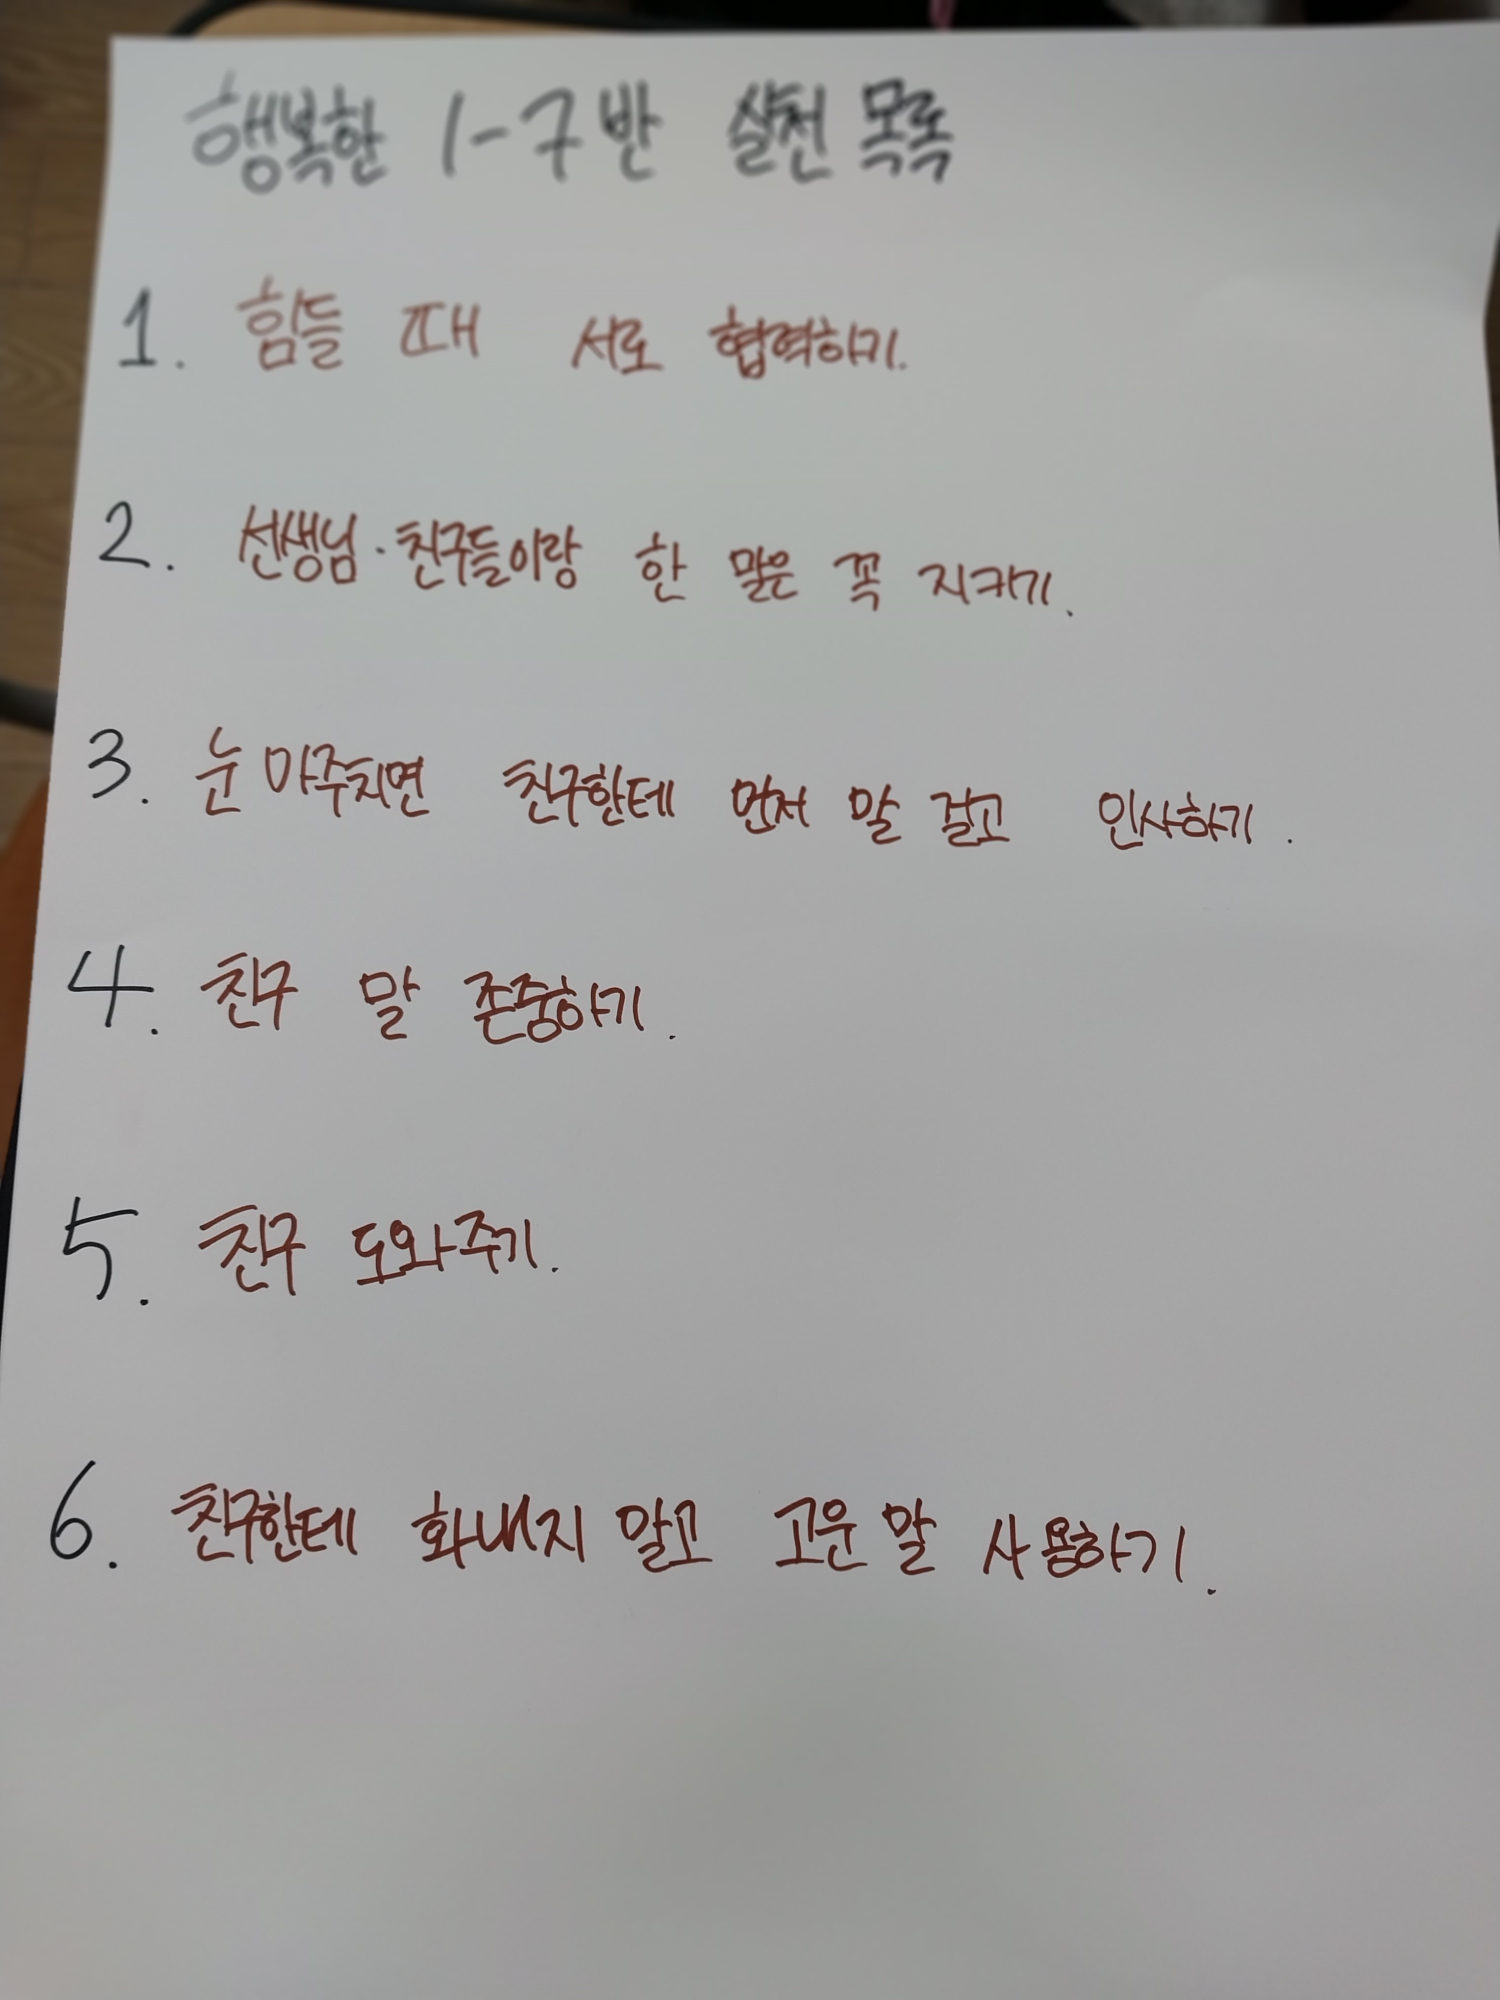 행복한 1-7반 실천 목록
1. 힘들 때 서로 협력하기.
2. 선생님·친구들이랑 한 말은 꼭 지키기.
3. 눈 마주치면 친구한테 먼저 말 걸고 인사하기.
4. 친구 말 존중하기.
5. 친구 도와주기.
6. 친구한테 화내지 말고 고운 말 사용하기.